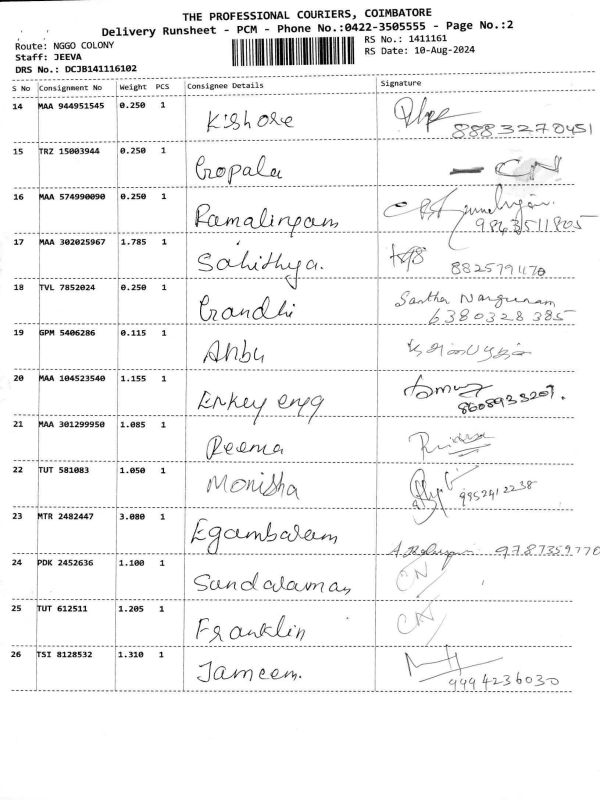 THE PROFESSIONAL COURIERS, COIMBATORE
Delivery Runsheet - PCM - Phone No.:0422-3505555 - Page No.:2
Route: NGGO COLONY
RS No.: 1411161
Staff: JEEVA
RS Date: 10-Aug-2024
DRS No.: DCJB141116102
S No Consignment No Weight PCS Consignee Details Signature
14 MAA 944951545 0.250 1 Kishore
8883270451
15 TRZ 15003944 0.250 1 Gopala - CN
16 MAA 574990090 0.250 1 Ramalingam
9843511805
17 MAA 302025967 1.785 1 Sahithya.
8825791170
18 TVL 7852024 0.250 1 Gandhi Santha
6380328385
19 GPM 5406286 0.115 1 Anbu
20 MAA 104523540 1.155 1 Enkey engg
8608933207.
21 MAA 301299950 1.085 1 Reema
22 TUT 581083 1.050 1 Monisha 9952412238
23 MTR 2482447 3.080 1 Egambaram
9787359770
24 PDK 2452636 1.100 1 Sundaraman CN
25 TUT 612511 1.205 1 Franklin CN
26 TSI 8128532 1.310 1 Jameem.
9994236030